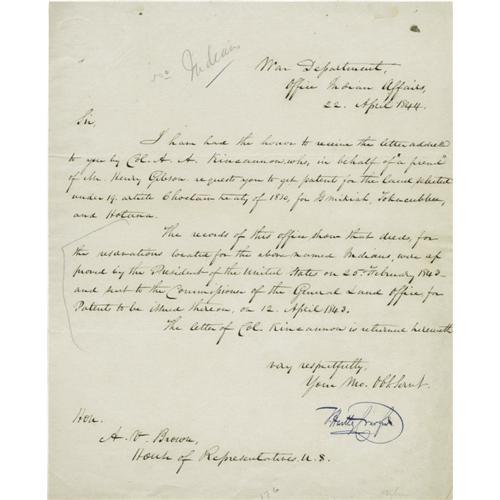 Indian
War Department,
Office Indian Affairs,
22. April 1844.
Sir,
I have had the honor to receive the letter addressed
to you by Col. A. A. Kincannon, who, in behalf of "a friend"
of Mr. Henry Gibson requests you to get patent for the land selected
under 19. article Choctaw treaty of 1830, for
and Hotuna.
The records of this office show that deeds, for
the reservations located for the above named Indians, were ap
proved by the President of the United States on 20. February 1843
and sent to the Commissioner of the General Land Office, for
Patents to be issued thereon, on 12. April 1843.
The letter of Col. Kincannon is returned herewith
very respectfully,
Your Mo. Obt. Servt.
T Hartley Crawford
Hon.
A. V. Brown,
House of Representatives. U. S.